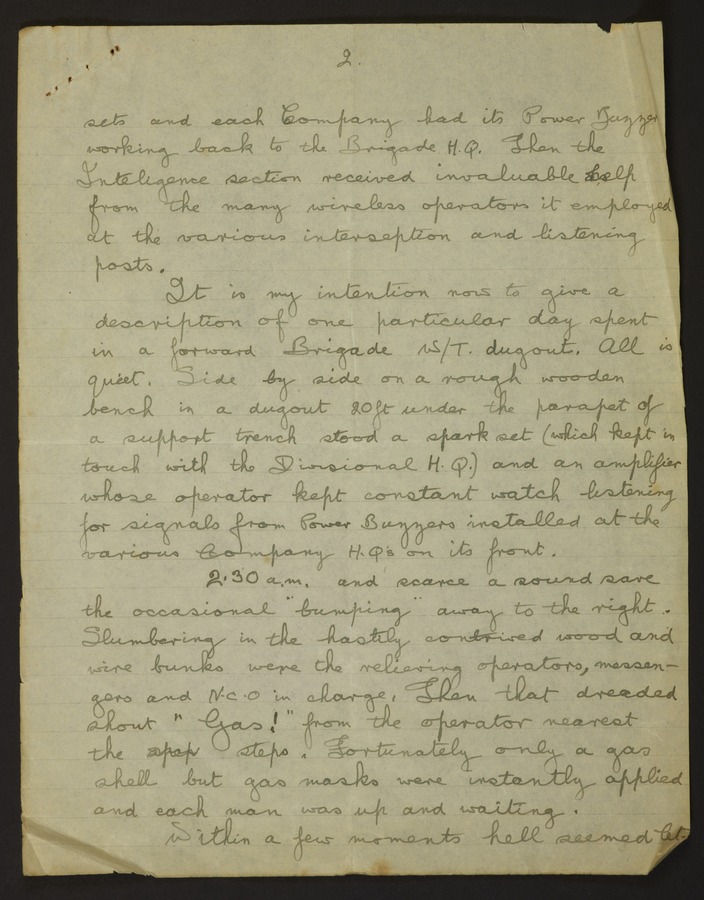 2.
sets and each Company had its Power Buzzer
working back to the Brigade H.Q. Then the
Intelligence section received invaluable help
from the many wireless operators it employed
at the various interseption and listening
posts.
It is my intention now to give a
description of one particular day spent
in a forward Brigade W/T. dugout. All is
quiet. Side by side on a rough wooden
bench in a dugout 20ft under the parapet of
a support trench stood a spark set (which kept in
touch with the Divisional H.Q.) and an amplifier
whose operator kept constant watch listening
for signals from Power Buzzers installed at the
various Company H.Q's on its front.
2.30 a.m. and scarce a sound save
the occasional "bumping" away to the right.
Slumbering in the hastily contrived wood and
wire bunks were the relieving operators, messen-
gers and N.C.O in charge. Then that dreaded
shout "Gas!" from the operator nearest
the steps. Fortunately only a gas
shell but gas masks were instantly applied
and each man was up and waiting.
Within a few moments hell seemed let-